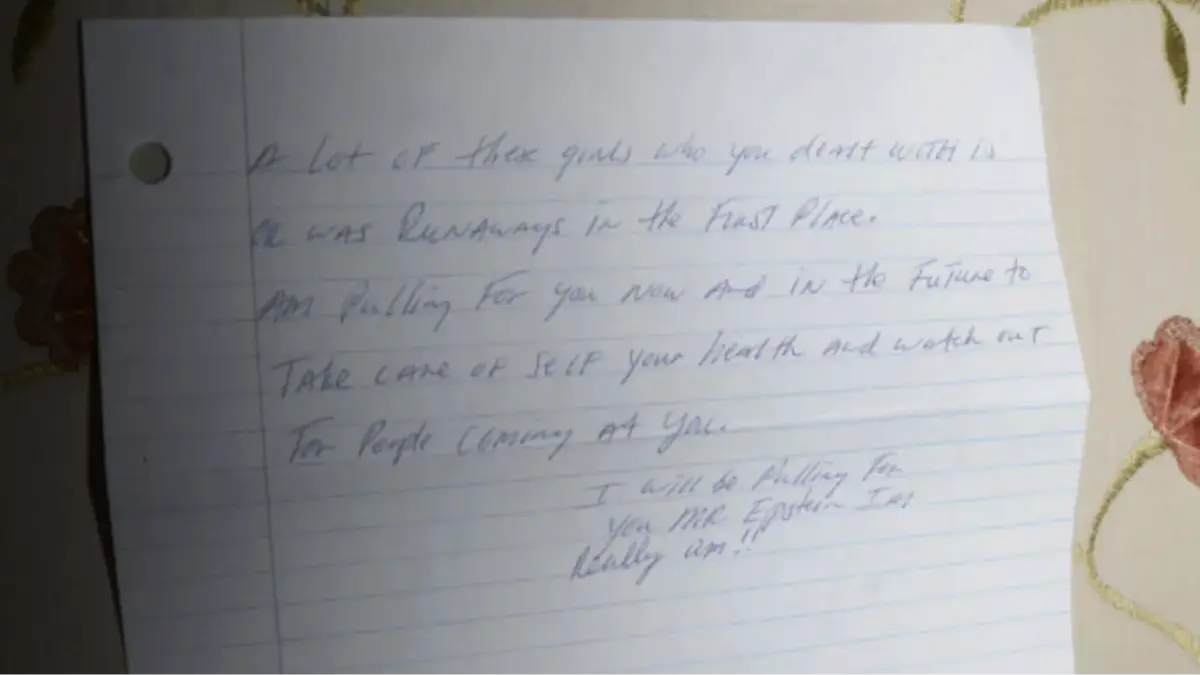 A Lot of thex girls who you dealt with is
or was Runaways in the First Place.
Am Pulling For you Now And in the Future to
Take care of self your health and watch out
For People Coming at you.
I will be Pulling For
you MR Epstein Im
Really am!!